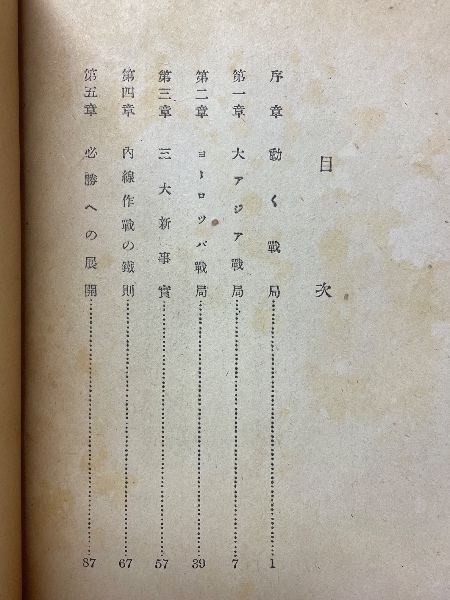 目次
序章 動く戰局……1
第一章 大アジア戰局……7
第二章 ヨーロツパ戰局……39
第三章 三大新事實……57
第四章 內線作戰の鐵則……67
第五章 必勝への展開……87